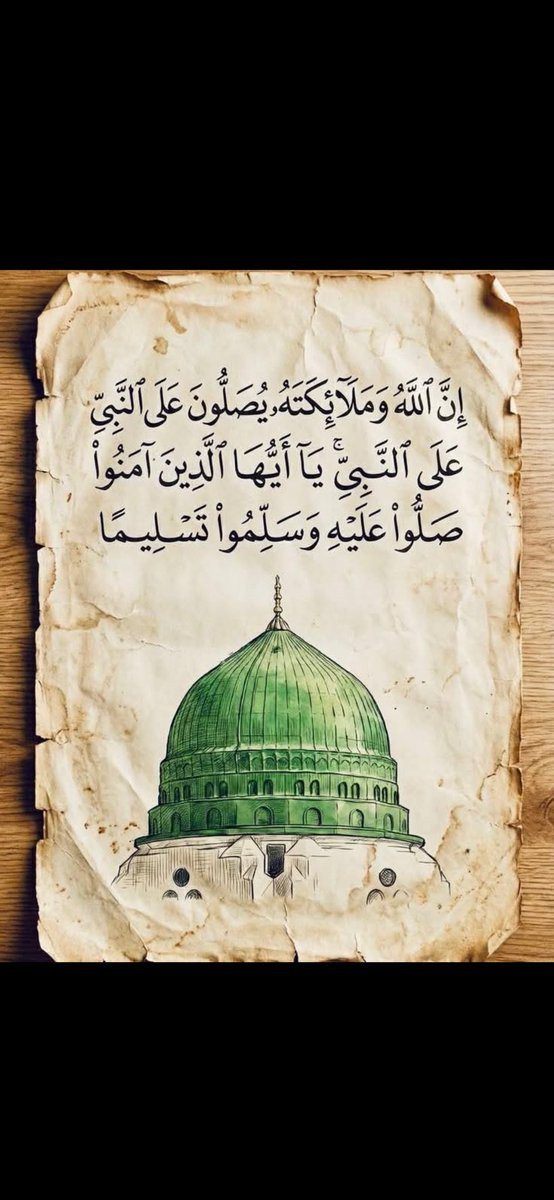 إِنَّ ٱللَّهَ وَمَلَآئِكَتَهُۥ يُصَلُّونَ عَلَى ٱلنَّبِىِّ
عَلَى ٱلنَّبِىِّ ۚ يَآ أَيُّهَا ٱلَّذِينَ آمَنُوا۟
صَلُّوا۟ عَلَيْهِ وَسَلِّمُوا۟ تَسْلِيمًا